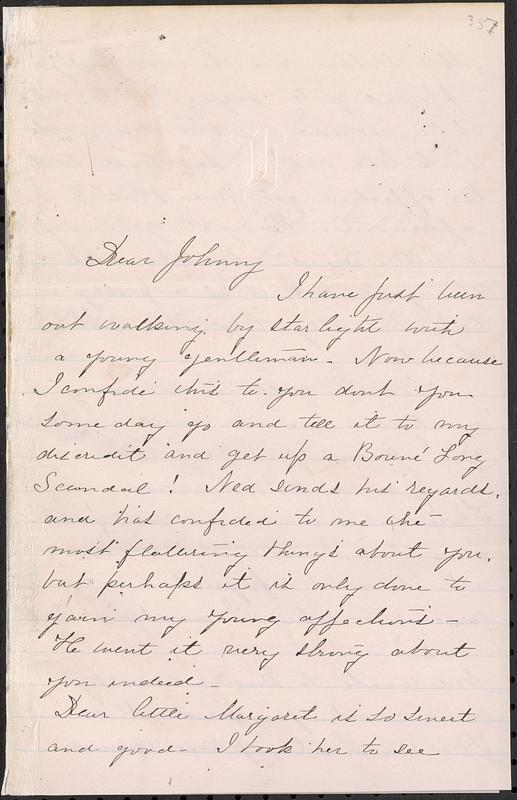 357
Dear Johnny
I have just been
out walking by star light with
a young gentleman - Now because
I confide this to you dont you
some day go and tell it to my
discredit and get up a
Scandal! Ned sends his regards,
and has confided to me the
most flattering things about you.
but perhaps it is only done to
gain my young affections -
He went it very strong about
you indeed -
Dear little Margaret is so sweet
and good - I took her to see